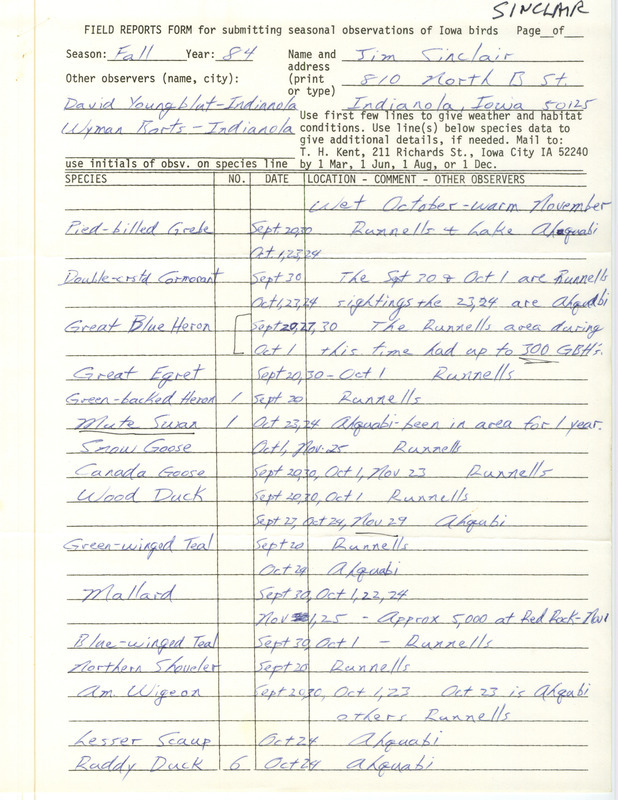 SINCLAIR
FIELD REPORTS FORM for submitting seasonal observations of Iowa birds Page__of__
Season: Fall Year: 84 Name and Jim Sinclair
address
Other observers (name, city): (print 810 North B St.
or type)
David Youngblut-Indianola Indianola, Iowa 50125
Wyman Barts-Indianola Use first few lines to give weather and habitat
conditions. Use line(s) below species data to
give additional details, if needed. Mail to:
T. H. Kent, 211 Richards St., Iowa City IA 52240
use initials of obsv. on species line by 1 Mar, 1 Jun, 1 Aug, or 1 Dec.
SPECIES NO. DATE LOCATION - COMMENT - OTHER OBSERVERS
Wet October-warm November
Pied-billed Grebe Sept 20,30 Runnells & Lake Ahquabi
Oct 1,23,24
Double-crstd Cormorant Sept 30 The Spt 30 & Oct 1 are Runnells
Oct 1,23,24 sightings the 23,24 are Ahquabi
Great Blue Heron Sept 20,27,30 The Runnells area during
Oct 1 this time had up to 300 GBH's.
Great Egret Sept 20,30-Oct 1 Runnells
Green-backed Heron 1 Sept 20 Runnells
Mute Swan 1 Oct 23,24 Ahquabi-been in area for 1 year.
Snow Goose Oct 1, Nov 25 Runnells
Canada Goose Sept 20,30, Oct 1, Nov 23 Runnells
Wood Duck Sept 20,30, Oct 1 Runnells
Sept 27, Oct 24, Nov 29 Ahquabi
Green-winged Teal Sept 20 Runnells
Oct 24 Ahquabi
Mallard Sept 30, Oct 1,22,24
Nov 1,25 - Approx 5,000 at Red Rock-Nov 1
Blue-winged Teal Sept 30, Oct 1 - Runnells
Northern Shoveler Sept 20 Runnells
Am. Wigeon Sept 20,30, Oct 1,23 Oct 23 is Ahquabi
others Runnells
Lesser Scaup Oct 24 Ahquabi
Ruddy Duck 6 Oct 24 Ahquabi